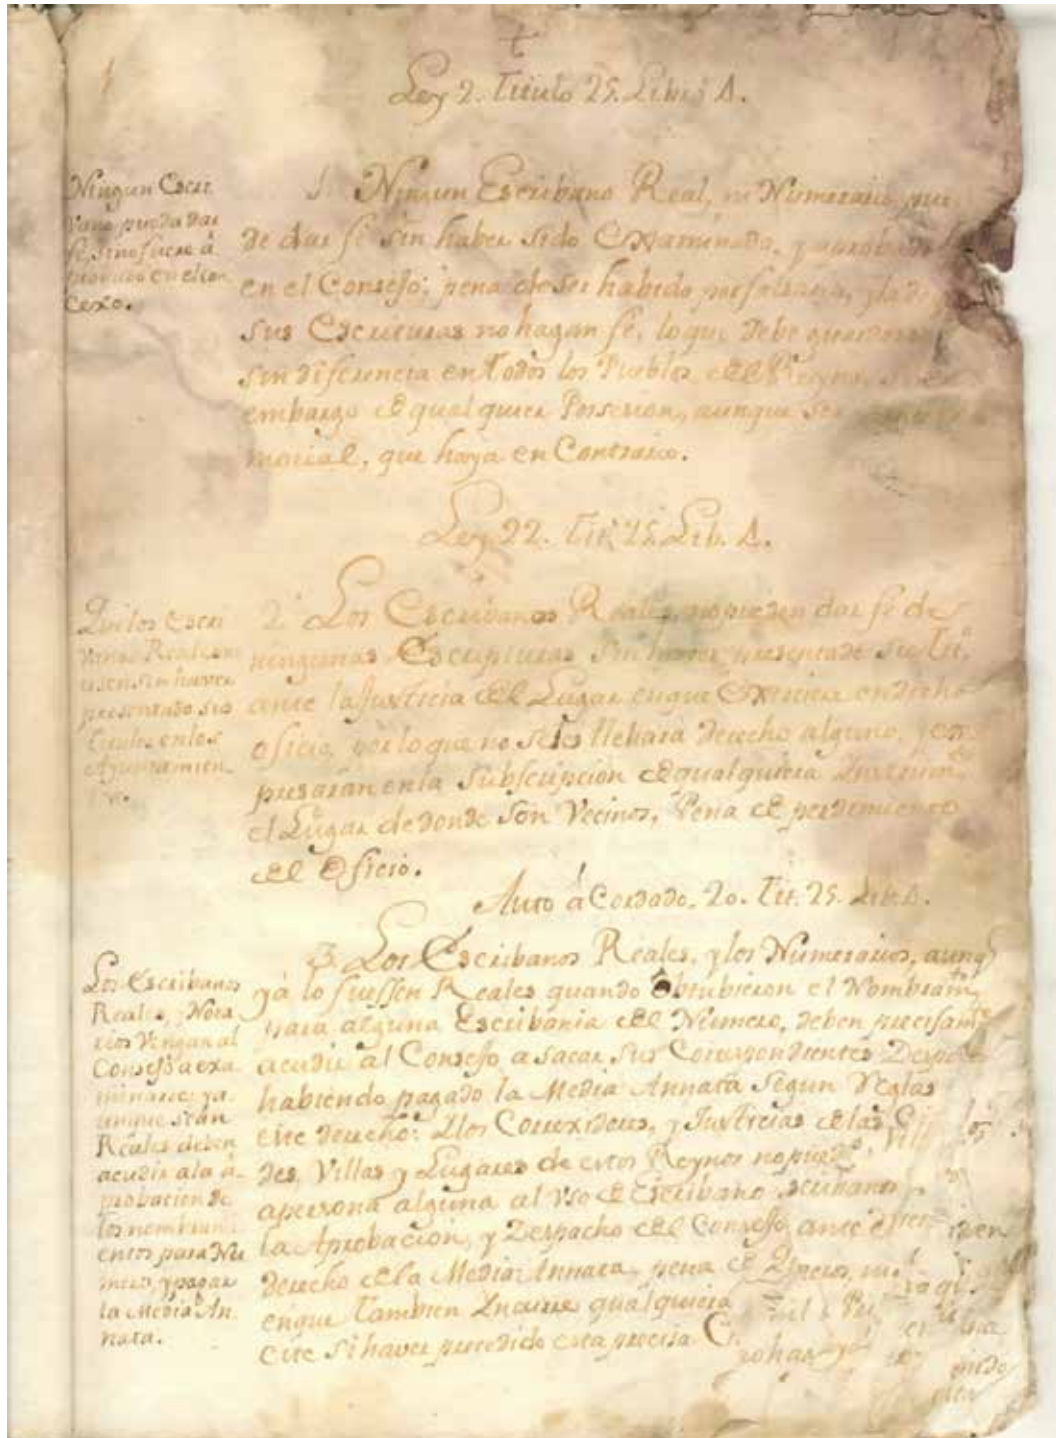 Ley 2. Titulo 25. Libro 4.
Ningun Escri
vano pueda dar
fe, sino fuere á
probado en el con
cexo.
1. Ningun Escribano Real, ni Numerario, pue
de dar fé sin haber sido Examinado, y aprobado
en el Consejo; pena de ser habido por falsario,
sus Escrituras no hagan fé, lo que debe guardarse
sin diferencia en todos los Pueblos del Reyno,
embargo de qualquiera Possesion, aunque sea
morial, que haya en Contrario.
Ley 22. Tit. 25. Lib. 4.
Que los Escri
vanos Reales no
usen sin haver
presentado sus
titulos en los
Ayuntamien
tos.
2. Los Escribanos Reales, no pueden dar fé de
ningunas Escripturas sin haver presentado su Titº
ante la Justicia del Lugar en que Exerciere en dicho
oficio, por lo que no se les llebará derecho alguno, y ex
presarán en la Subscripcion de qualquiera Instrumtº
el Lugar de donde son Vecinos, Pena de perdimiento
del Oficio.
Auto á Cordado. 20. Tit. 25. Lib. 4.
Los Escribanos
Reales, y Nota
rios Vengan al
Consejo a exa
minarse: ya
unque sean
Reales deben
acudir ala á
probacion de
los nombrami
entos para Nu
meros, y pagar
la Media An
nata.
3. Los Escribanos Reales, y los Numerarios, aunq
yá lo fuessen Reales quando Obtubieron el Nombramtº
para alguna Escribania del Numero, deben precisamte
acudir al Consejo a sacar sus Correspondientes Despa
habiendo pagado la Media Annata segun Reglas
este derecho: Y los Correxidores, y Justicias de las
des, Villas y Lugares de estos Reynos no
apersona alguna al Vso de Escribano
la Aprobacion, y Despacho del Consejo,
derecho de la Media Annata, pena de
en que tambien Incurre qualquiera
este si haver precedido esta precisa